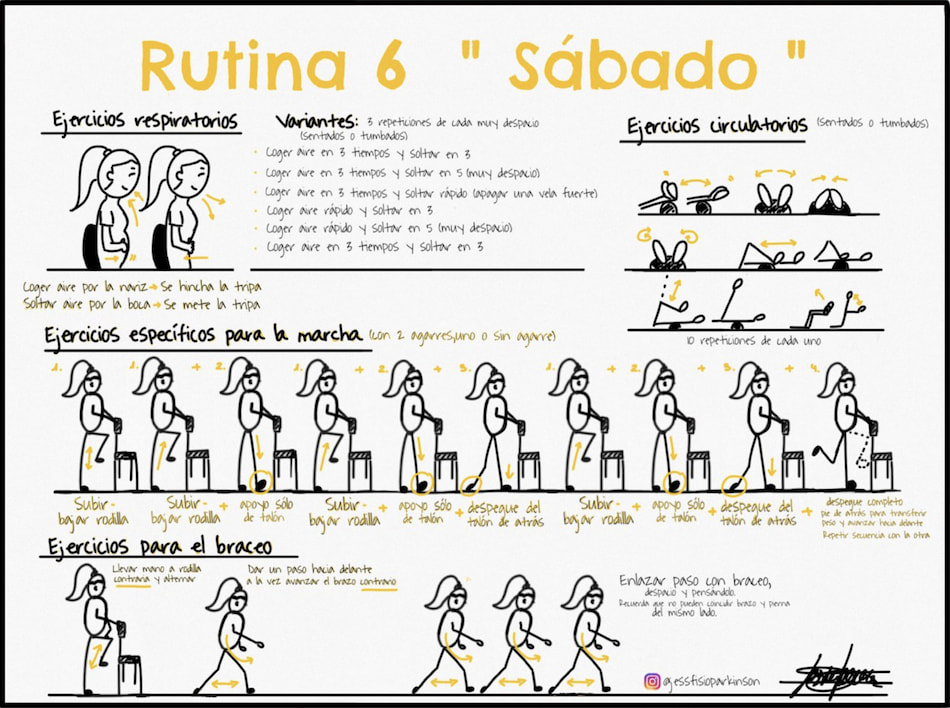 Rutina 6 " Sábado "
Ejercicios respiratorios
Variantes: 3 repeticiones de cada muy despacio
(sentados o tumbados)
• Coger aire en 3 tiempos y soltar en 3
• Coger aire en 3 tiempos y soltar en 5 (muy despacio)
• Coger aire en 3 tiempos y soltar rápido (apagar una vela fuerte)
• Coger aire rápido y soltar en 3
• Coger aire rápido y soltar en 5 (muy despacio)
• Coger aire en 3 tiempos y soltar en 3
Coger aire por la nariz → Se hincha la tripa
Soltar aire por la boca → Se mete la tripa
Ejercicios circulatorios (sentados o tumbados)
10 repeticiones de cada uno
Ejercicios específicos para la marcha (con 2 agarres, uno o sin agarre)
1. 1. + 2. 1. + 2. + 3. 1. + 2. + 3. + 4.
Subir-
bajar rodilla
Subir-
bajar rodilla
+
apoyo sólo
de talón
Subir-
bajar rodilla
+
apoyo sólo
de talón
+
despegue del
talón de atrás
Subir-
bajar rodilla
+
apoyo sólo
de talón
+
despegue del
talón de atrás
+
despegue completo
pie de atrás para transferir
peso y avanzar hacia delante
Repetir secuencia con la otra
Ejercicios para el braceo
Llevar mano a rodilla
contraria y alternar
Dar un paso hacia delante
a la vez avanzar el brazo contrario
Enlazar paso con braceo,
despacio y pensándolo.
Recuerda que no pueden coincidir brazo y pierna
del mismo lado.
@jessfisioparkinson